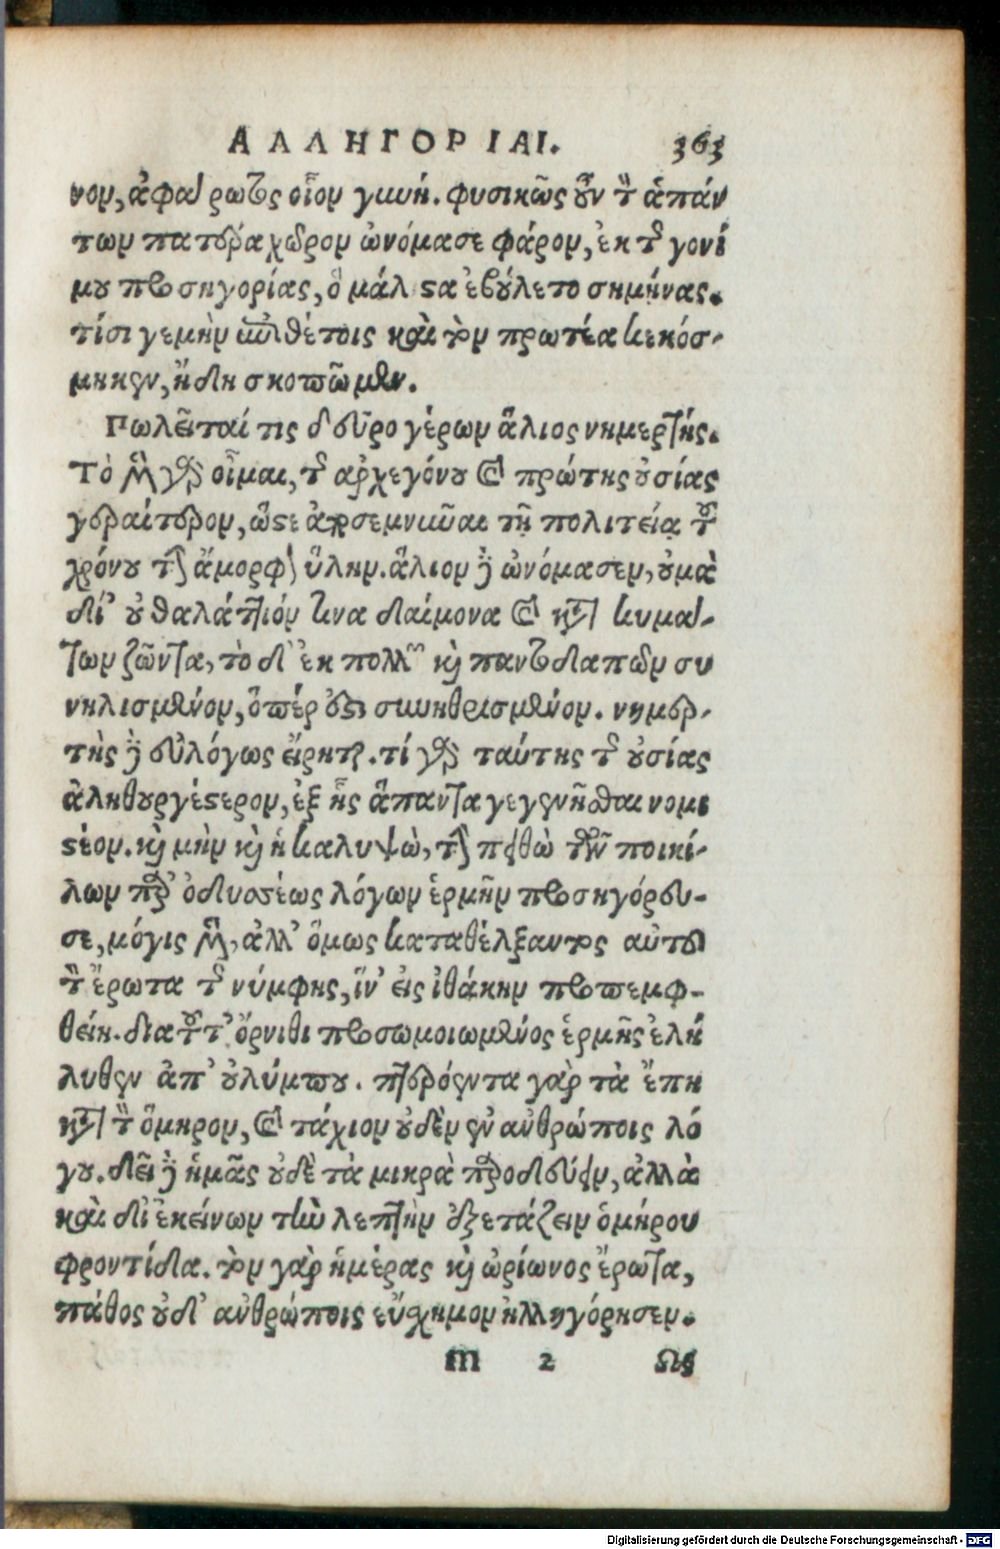 ΑΛΛΗΓΟΡΙΑΙ. 363
νου, ἀφάρωτος οἷον γυνή. φυσικῶς οὖν τὸν ἁπάν
των πατέρα χῶρον ὠνόμασε φάρον, ἐκ τῆς γονί
μου προσηγορίας, ὃ μάλιστα ἐβούλετο σημήνας.
τίσι γεμὴν ἐπιθέτοις καὶ τὸν πρωτέα κεκόσ-
μηκεν, ἤδη σκοπῶμεν.
Πωλεῖταί τις δεῦρο γέρων ἅλιος νημερτής.
Τὸ μὲν γὰρ οἶμαι, τῆς ἀρχεγόνου καὶ πρώτης οὐσίας
γεραίτερον, ὥστε ἀποσεμνῦναι τῇ πολιτείᾳ τοῦ
χρόνου τὴν ἄμορφον ὕλην. ἅλιον δὲ ὠνόμασεν, ουμὰ
δί' οὐ θαλάττιόν τινα δαίμονα καὶ κατὰ κυμά-
των ζῶντα, τὸ δ' ἐκ πολλῶν καὶ παντοδαπῶν συ
νηλισμένον, ὅπέρ ἐστι συνηθροισμένον. νημερ-
τὴς δὲ εὐλόγως εἴρηται. τί γὰρ ταύτης τῆς οὐσίας
ἀληθουργέστερον, ἐξ ἧς ἅπαντα γεγενῆσθαι νομι
στέον. καὶ μὴν καὶ ἡ καλυψὼ, τὴν πειθὼ τῶν ποικί-
λων παρ' ὀδυσσέως λόγων ἑρμῆν προσηγόρευ-
σε, μόγις μὲν, ἀλλ' ὅμως καταθέλξαντος αὐτοῦ
τὸν ἔρωτα τῆς νύμφης, ἵν' εἰς ἰθάκην προπεμφ-
θείη. διὰ τοῦτ' ὄρνιθι προσωμοιωμένος ἑρμῆς ἐλή
λυθεν ἀπ' ὀλύμπου. πτερόεντα γὰρ τὰ ἔπη
κατὰ τὸν ὅμηρον, καὶ τάχιον οὐδὲν ἐν ἀνθρώποις λό
γου. δεῖ δὲ ἡμᾶς οὐδὲ τὰ μικρὰ παροδεύειν, ἀλλὰ
καὶ δι' ἐκείνων τὴν λεπτὴν ἐξετάζειν ὁμήρου
φροντίδα. τὸν γὰρ ἡμέρας καὶ ὠρίωνος ἔρωτα,
πάθος οὐδ' ἀνθρώποις εὔσχημον ἠλληγόρησεν.
m 2 Ως
Digitalisierung gefördert durch die Deutsche Forschungsgemeinschaft - DFG